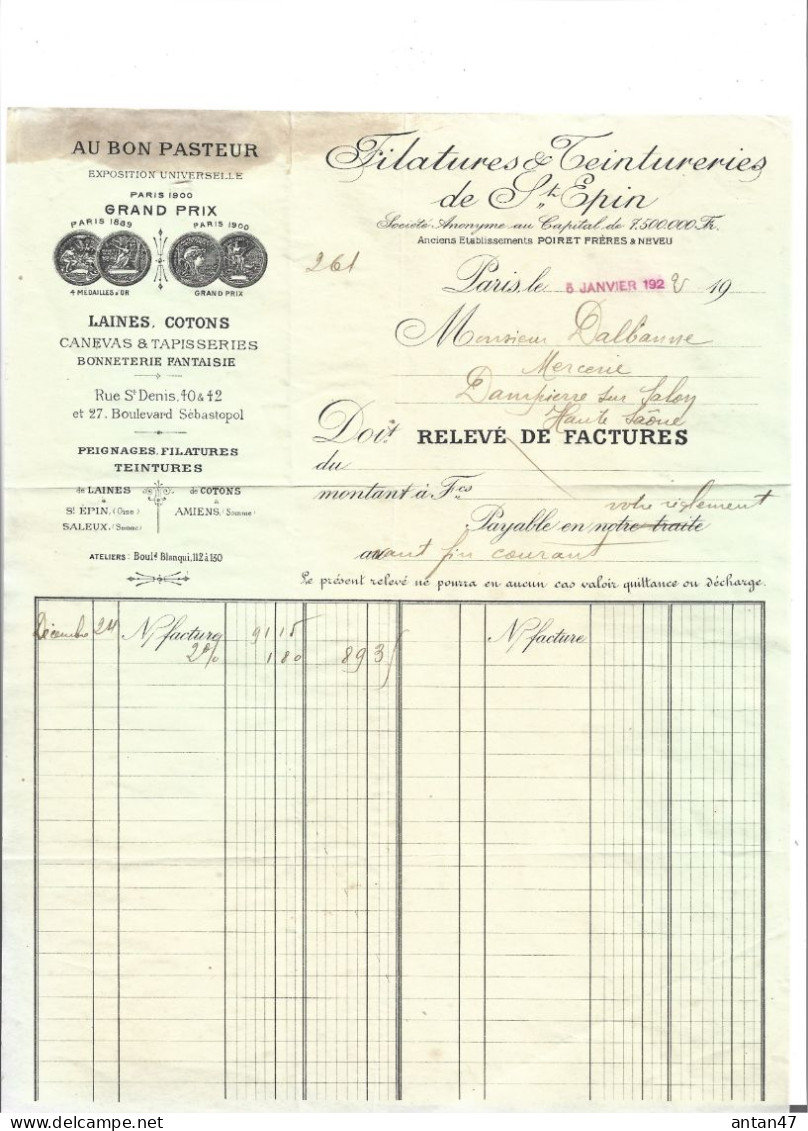 AU BON PASTEUR
EXPOSITION UNIVERSELLE
PARIS 1900
GRAND PRIX
PARIS 1889 PARIS 1900
4 MÉDAILLES D'OR GRAND PRIX
LAINES, COTONS
CANEVAS & TAPISSERIES
BONNETERIE FANTAISIE
Rue St Denis, 40 & 42
et 27, Boulevard Sébastopol
PEIGNAGES, FILATURES
TEINTURES
de LAINES de COTONS
à à
St ÉPIN, (Oise) AMIENS, (Somme)
SALEUX, (Somme)
ATELIERS: Bould Blanqui, 112 à 130
Filatures & Teintureries
de St Epin
Société Anonyme au Capital de 7.500.000 Fr.
Anciens Etablissements POIRET FRÈRES & NEVEU
261
Paris, le 5 JANVIER 192 2 19
Monsieur Dalbanne
Mercerie
Dampierre sur Salon
Haute Saône
Doit RELEVÉ DE FACTURES
du
montant à Fcs
votre règlement
Payable en notre traite
avant fin courant
Le présent relevé ne pourra en aucun cas valoir quittance ou décharge.
Décembre 24 N/ facture 91 15 N/ facture
2% 1 80 89 35
antan47